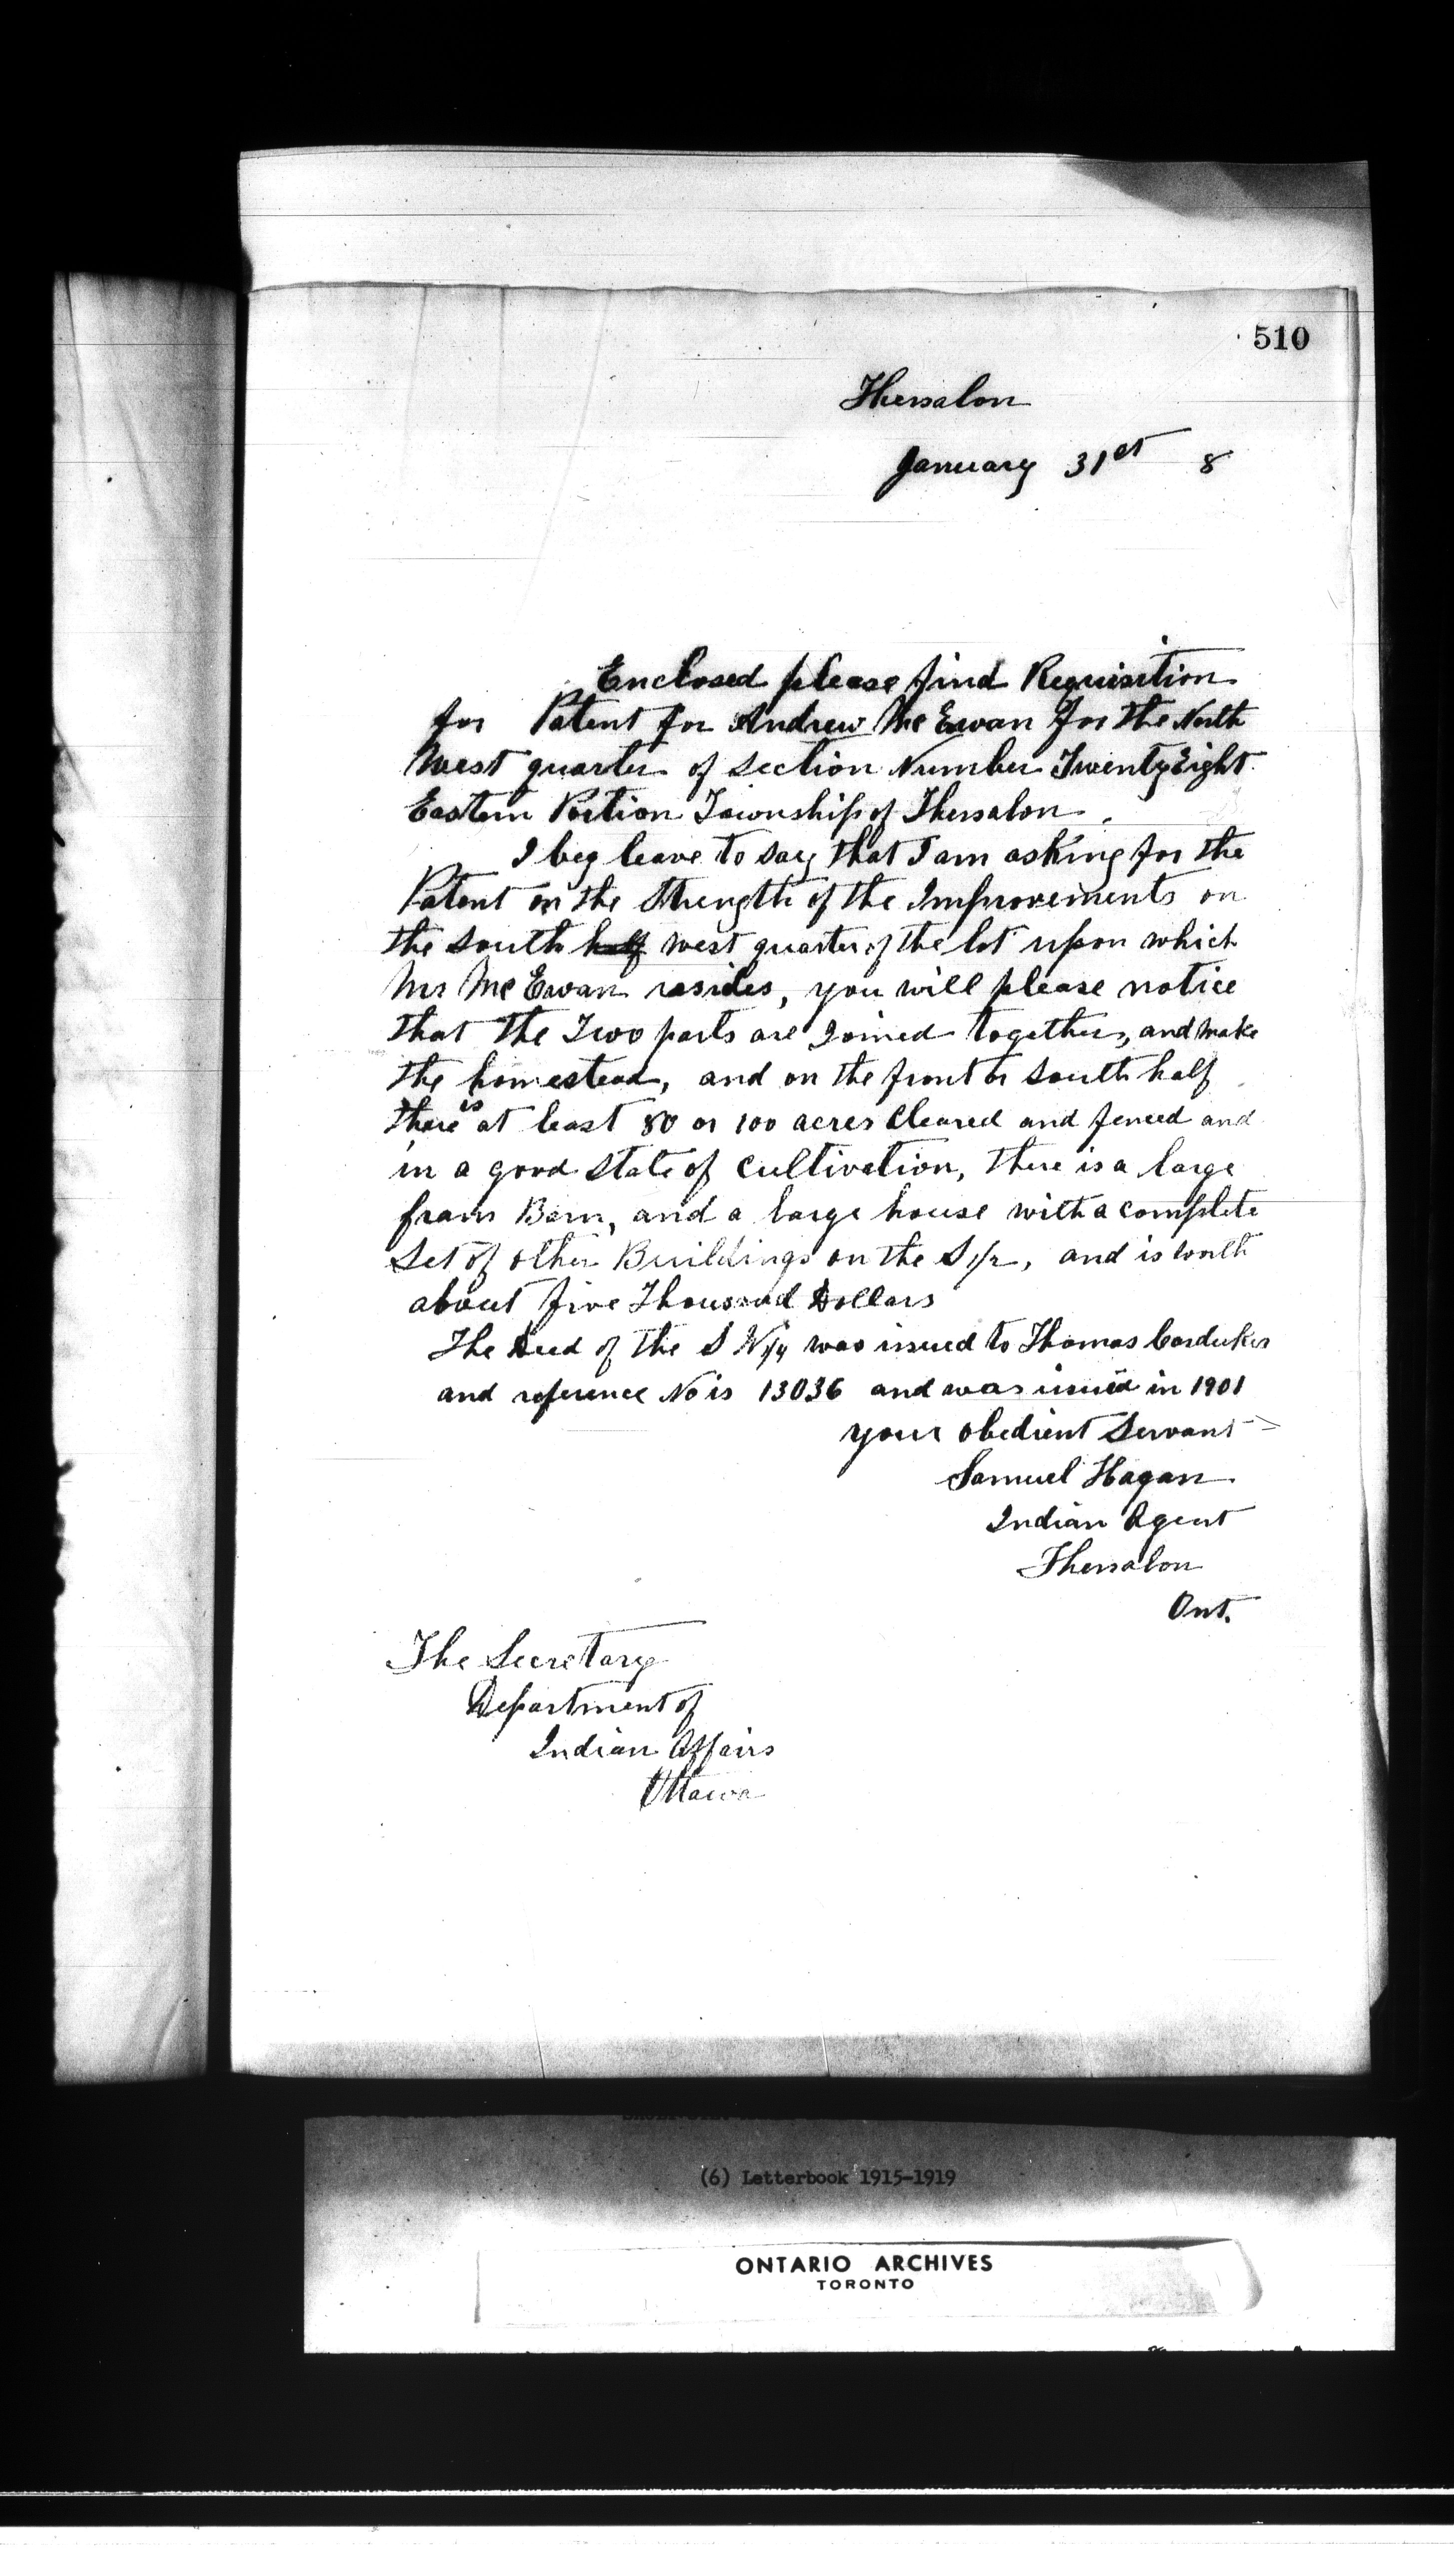 510
Thessalon
January 31st 8
Enclosed please find Requisition
for Patent for Andrew Mc Ewan for the North
West quarter of Section Number Twenty Eight
Eastern Portion Township of Thessalon.
I beg leave to say that I am asking for the
Patent on the Strength of the Improvements on
the South half west quarter of the lot upon which
Mr Mc Ewan resides, you will please notice
that the Two parts are Joined together, and make
the homestead, and on the front or South half
there is at least 80 or 100 acres Cleared and fenced and
in a good State of Cultivation, there is a large
fram Barn, and a large house with a complete
Set of other Buildings on the S 1/2, and is worth
about five Thousand Dollars
The Deed of the S W 1/4 was issued to Thomas
and reference No is 13036 and was issued in 1901
your obedient Servant
Samuel Hagan
Indian Agent
Thessalon
Ont.
The Secretary
Department of
Indian Affairs
Ottawa
(6) Letterbook 1915-1919
ONTARIO ARCHIVES
TORONTO